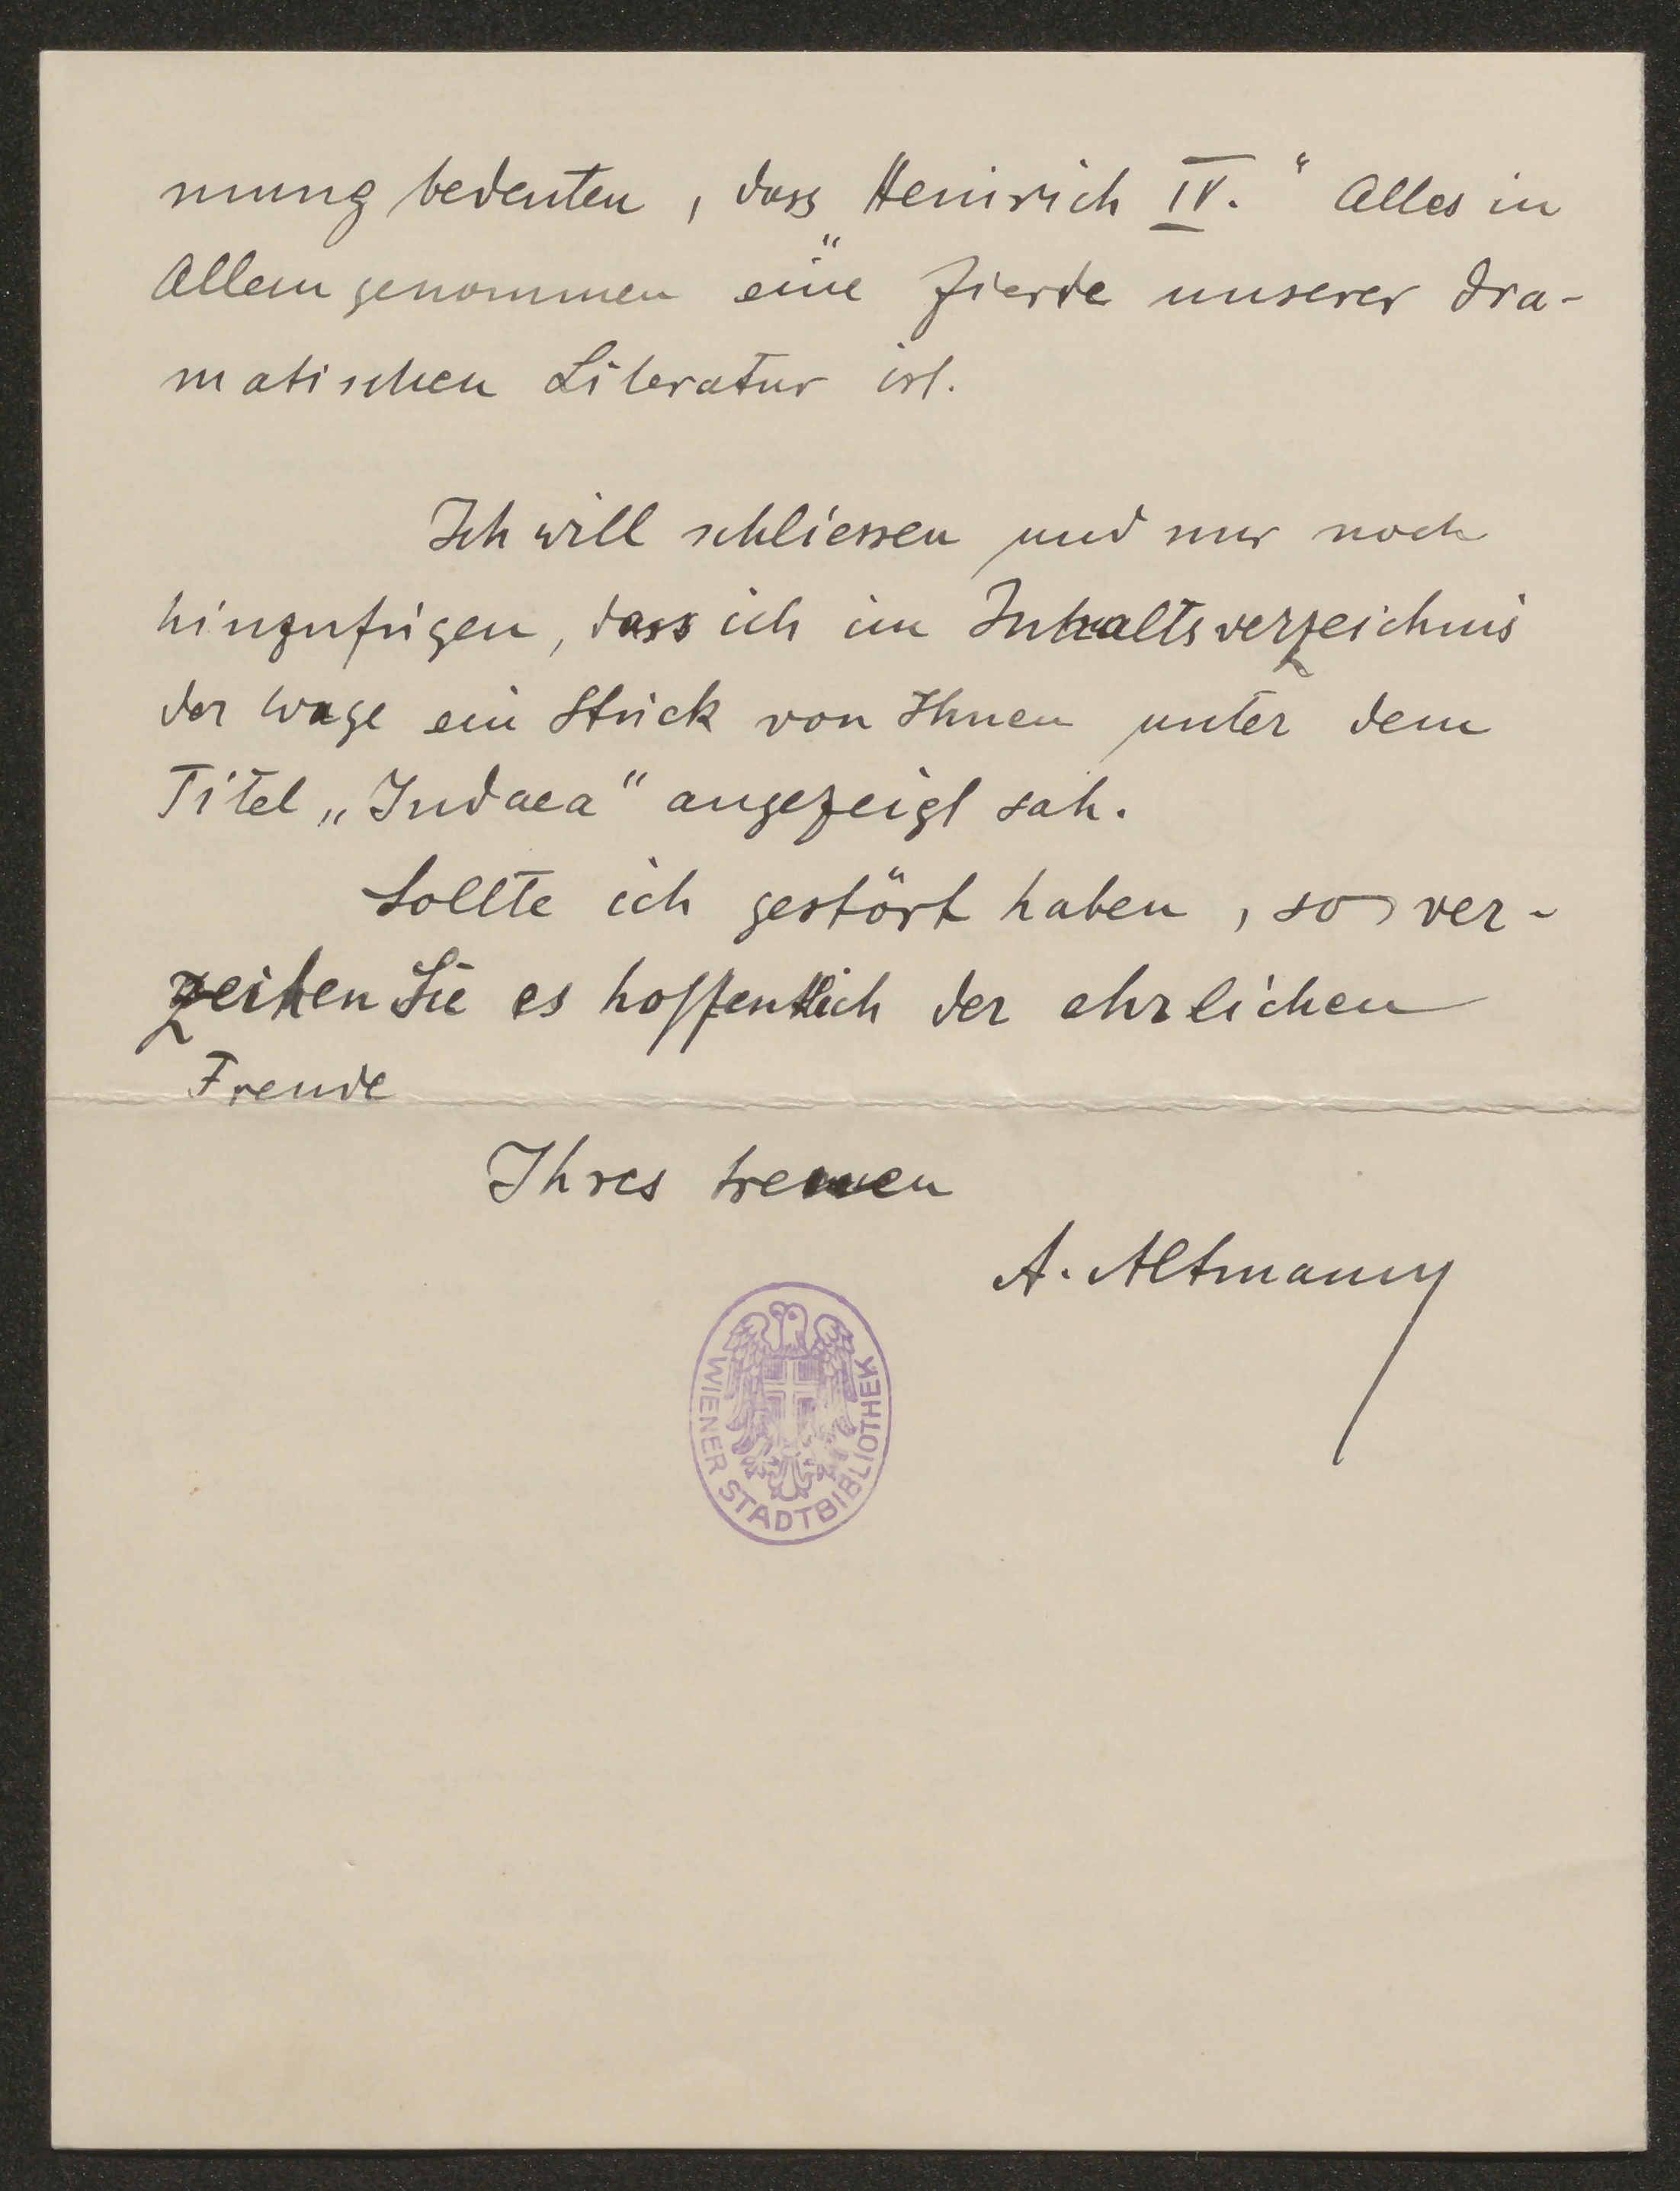 nung bedeuten, dass „Heinrich IV.“ Alles in
Allem genommen eine Zierde unserer dra-
matischen Literatur ist.
Ich will schliessen und nur noch
hinzufügen, dass ich im Inhaltsverzeichnis
der Wage ein Stück von Ihnen unter dem
Titel „Judaea“ angezeigt sah.
Sollte ich gestört haben, so ver-
zeihen Sie es hoffentlich der ehrlichen
Freude
Ihres treuen
A. Altmann
WIENER STADTBIBLIOTHEK